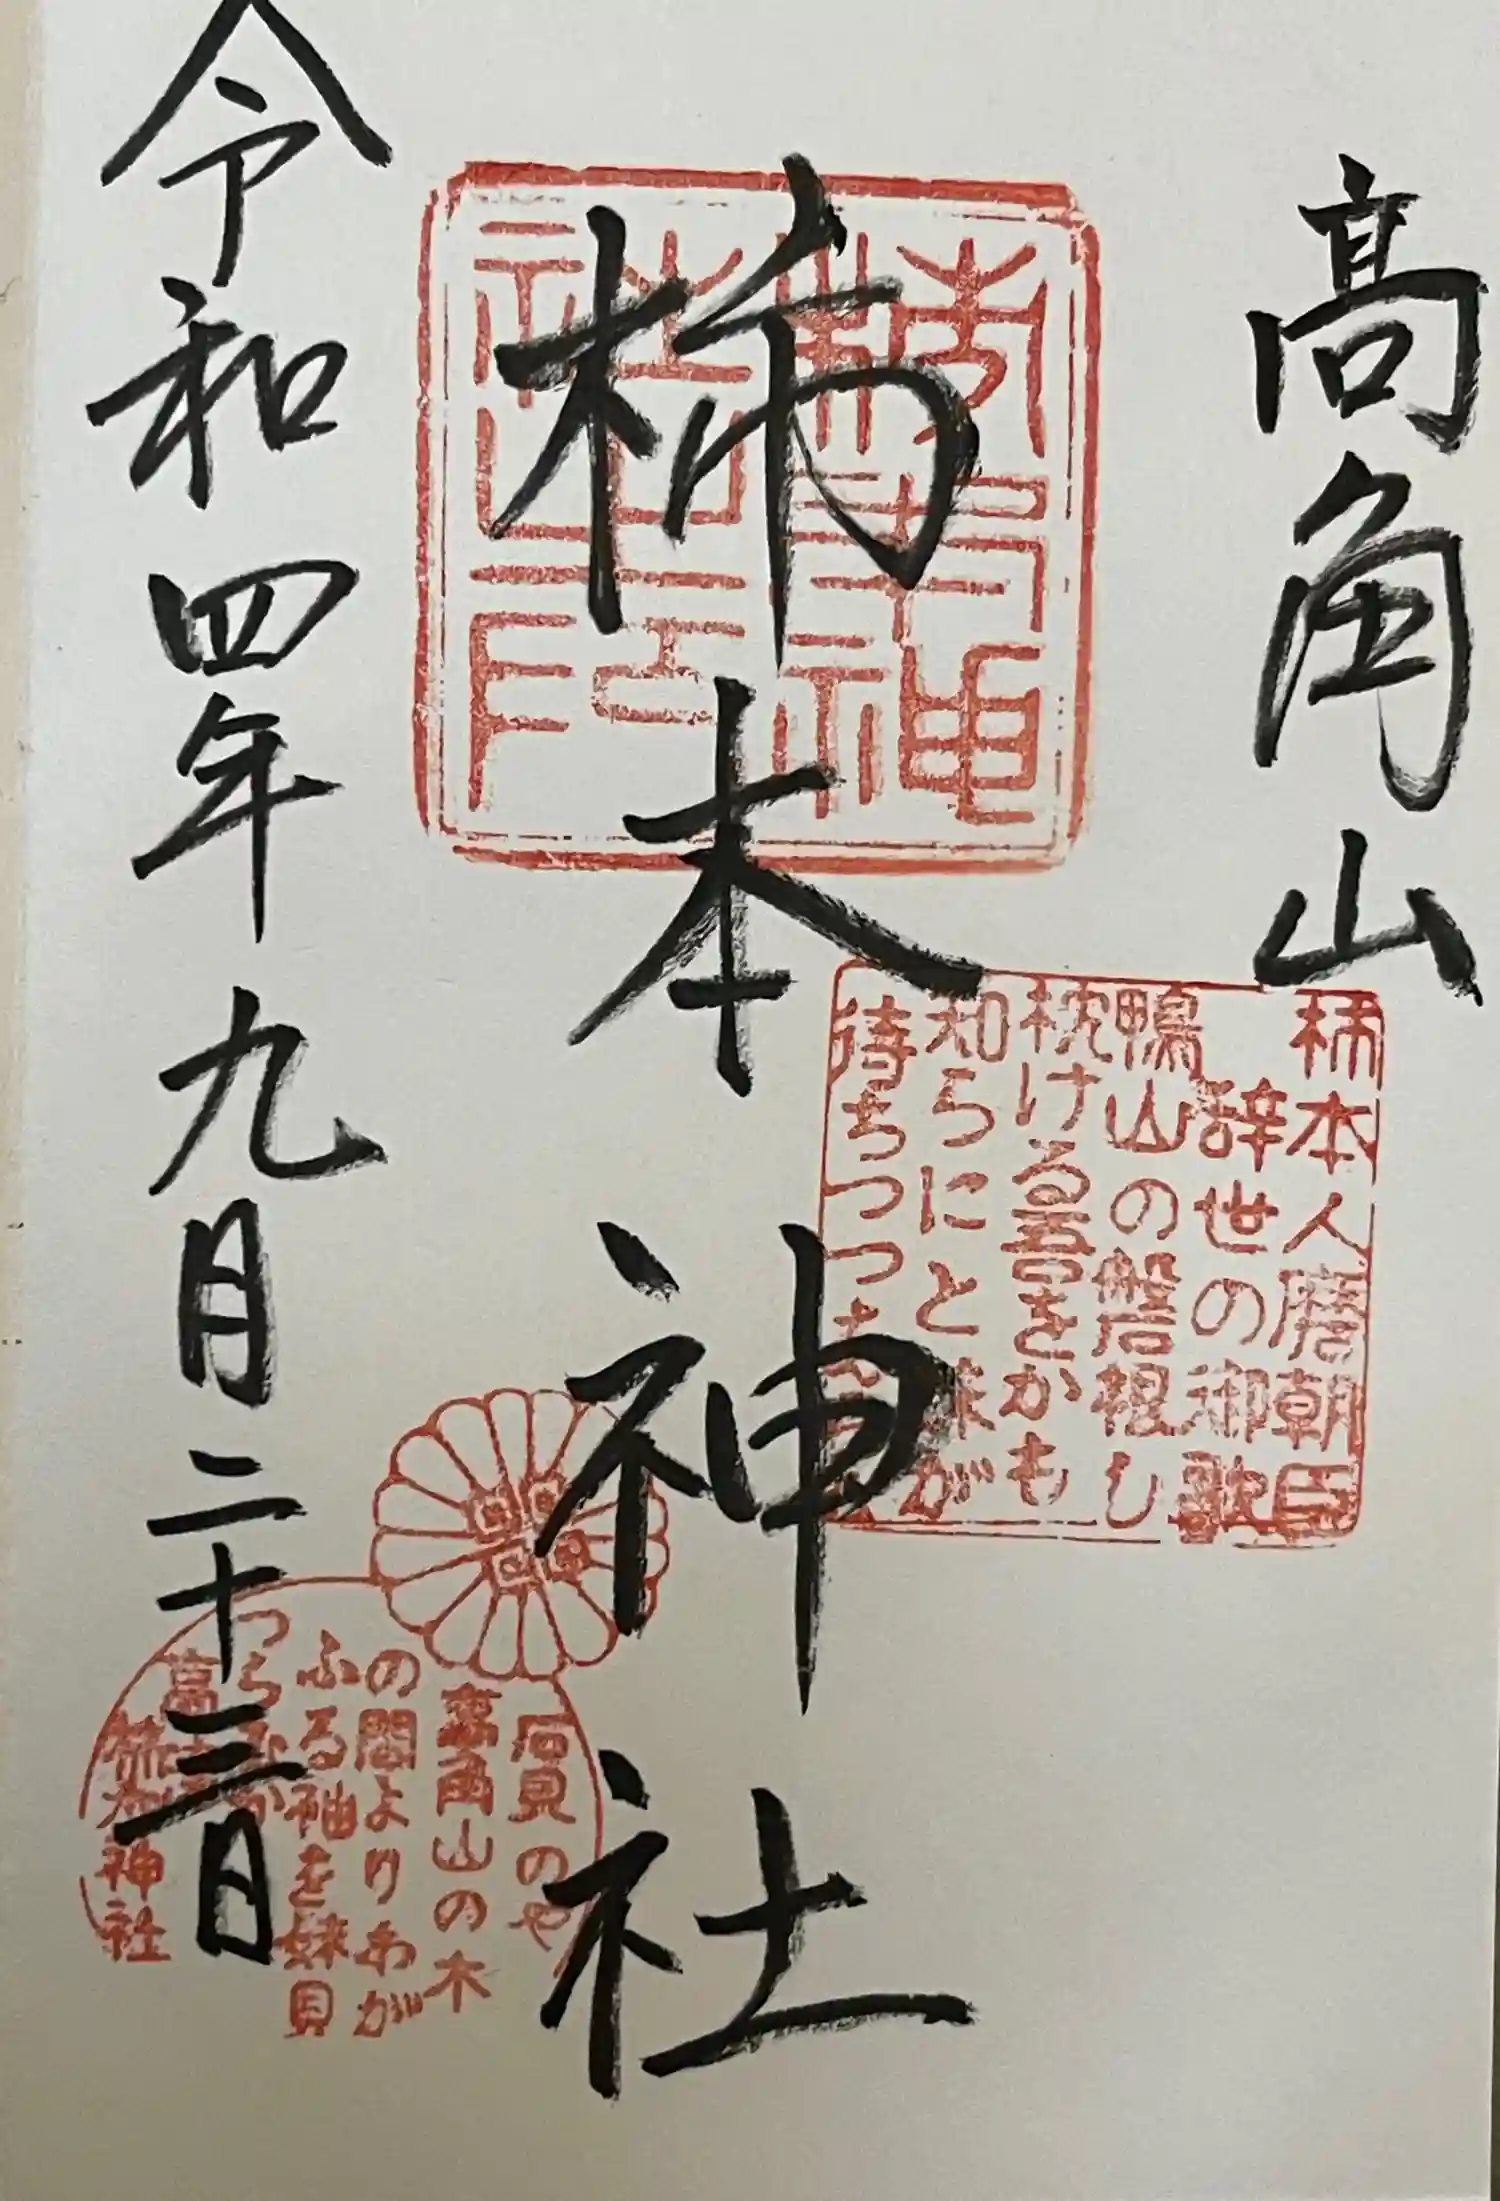 高角山
柿本神社
令和四年九月二十三日
柿本神社之印
柿本人磨朝臣
辞世の御歌
鴨山の磐根し
枕ける吾をかも
知らにと妹が
待ちつつ
石見のや
高角山の木
の間よりわが
ふる袖を妹見
つら
高
柿本神社